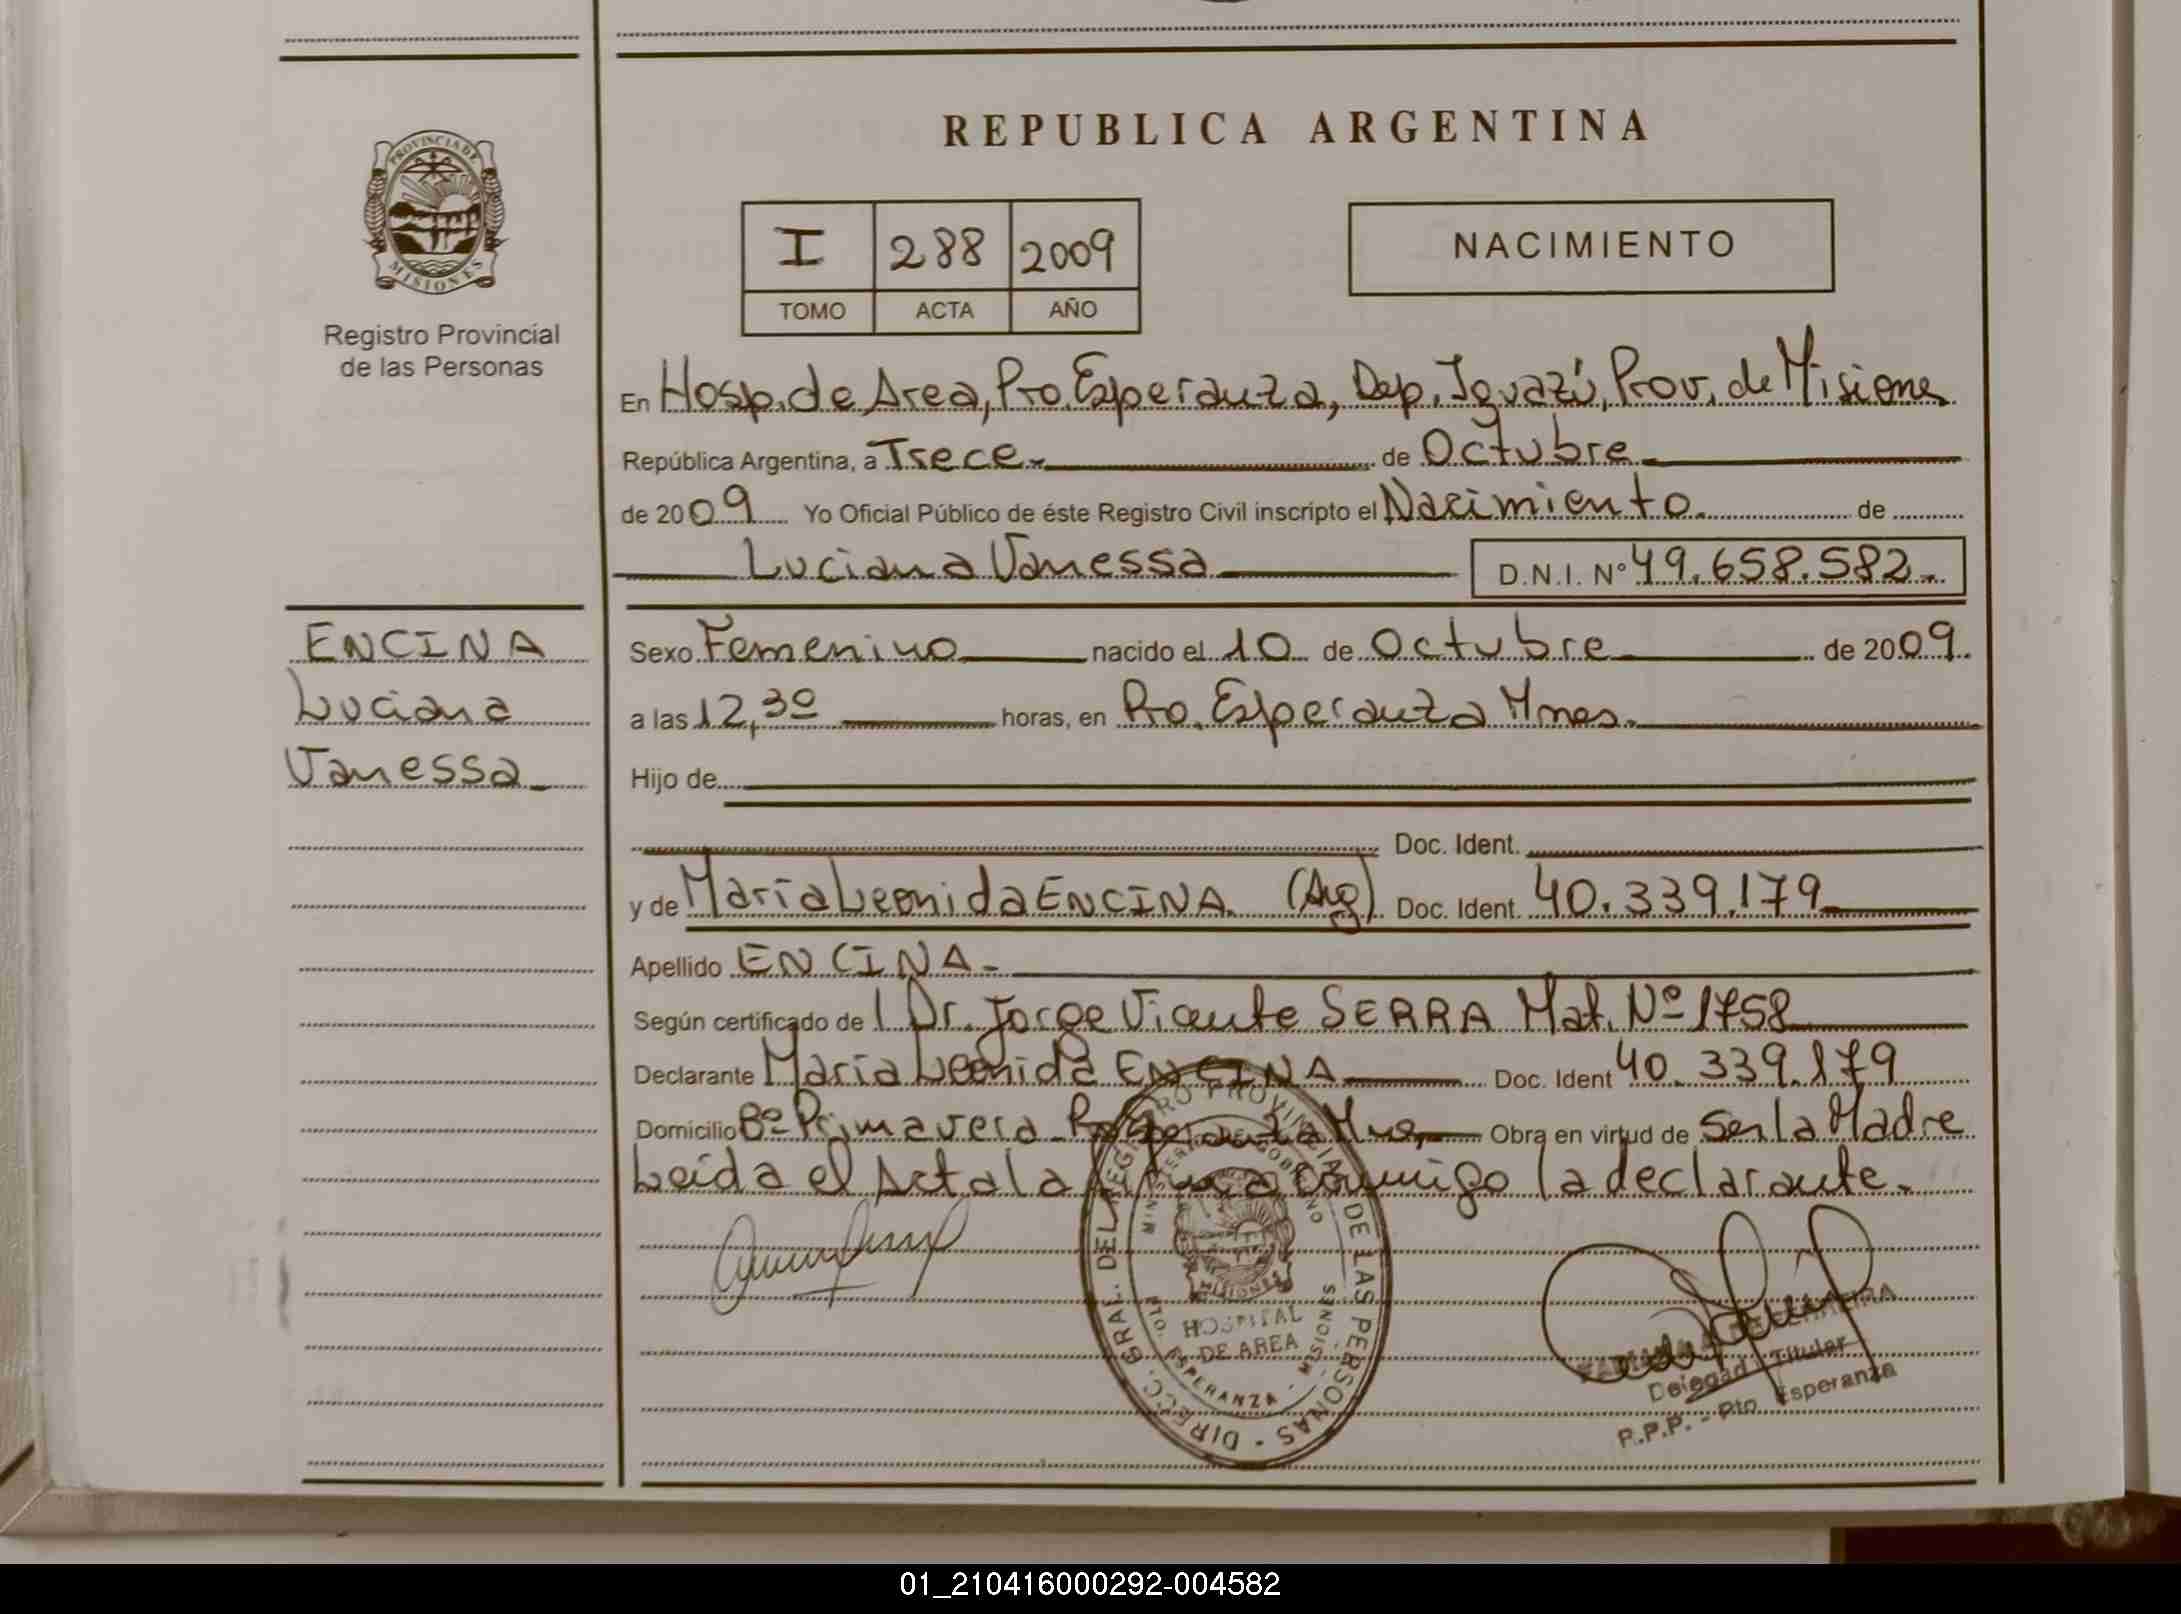 PROVINCIA DE
MISIONES
Registro Provincial
de las Personas
REPUBLICA ARGENTINA
I 288 2009
TOMO ACTA AÑO
NACIMIENTO
En Hosp. de Area, Pto. Esperanza, Dep. Iguazú, Prov. de Misiones
República Argentina, a Trece.- de Octubre
de 2009 Yo Oficial Público de éste Registro Civil inscripto el Nacimiento. de
Luciana Vanessa D.N.I. Nº 49.658.582.-
ENCINA
Luciana
Vanessa
Sexo Femenino nacido el 10 de Octubre de 2009.
a las 12,30 horas, en Pto. Esperanza Mnes.
Hijo de
Doc. Ident.
y de Maria Leonida ENCINA. (Arg) Doc. Ident. 40.339.179
Apellido ENCINA.-
Según certificado de l Dr. Jorge Vicente SERRA Mat. Nº 1758
Declarante Maria Leonida ENCINA Doc. Ident 40.339.179
Domicilio Bº Primavera Pto Esperanza Mnes, Obra en virtud de Ser la Madre
Leida el Acta la firma conmigo la declarante.
DIRECC. GRAL. DEL REGISTRO PROVINCIAL DE LAS PERSONAS
MINISTERIO DE GOBIERNO
MISIONES
HOSPITAL
DE AREA
PTO. ESPERANZA - MISIONES
Titular
R.P.P. - Pto. Esperanza
01_210416000292-004582